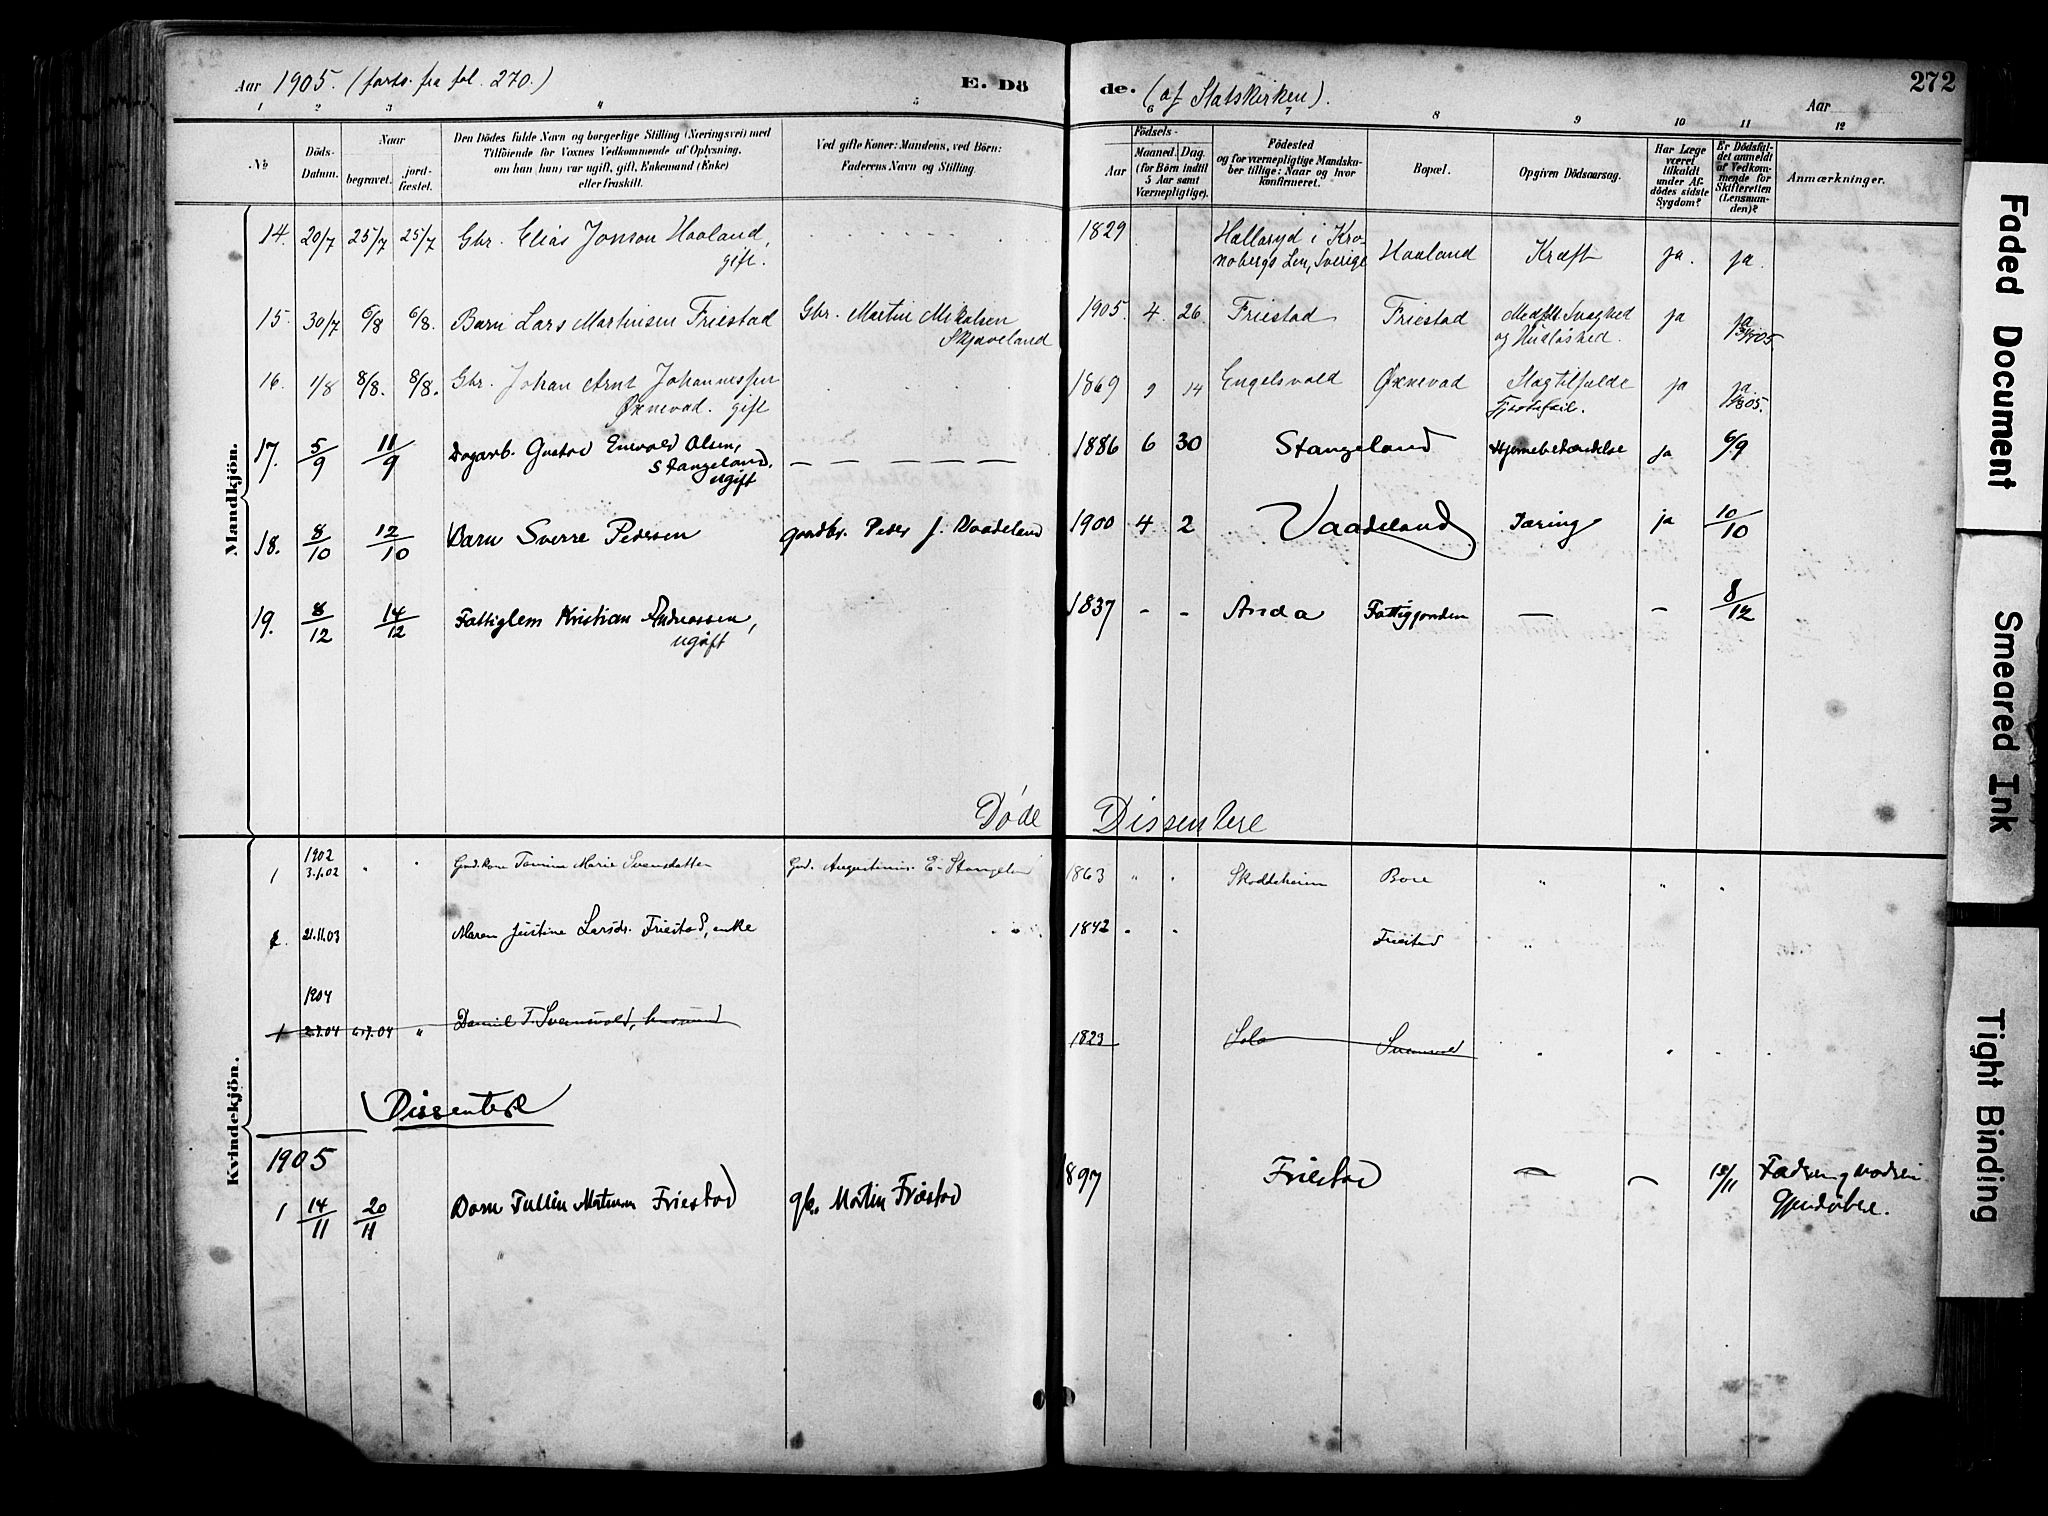 Aar 1905. (forts. fra fol. 270.) E. Dö
de. (af Statskirken). Aar 272
1 2 3 4 5 6 7 8 9 10 11 12
No
Döds-Datum.
Naar
begravet.
jord-fæstet.
Den Dödes fulde Navn og borgerlige Stilling (Næringsvei) med
Tilföiende for Voxnes Vedkommende af Oplysning.
om han (hun) var ugift, gift, Enkemand (Enke)
eller fraskilt.
Ved gifte Koner: Mandens, ved Börn:
Faderens Navn og Stilling.
Födsels-
Aar
Maaned. Dag.
(for Börn indtil
5 Aar samt
Værnepligtige).
Födested
og for værnepligtige Mandska-
ber tillige: Naar og hvor
konfirmeret.
Bopæl.
Opgiven Dödsaarsag.
Har Læge
været
tilkaldt
under Af-
dödes sidste
Sygdom?
Er Dödsfal-
det anmeldt
af Vedkom-
mende for
Skifteretten
(Lensman-
den)?
Anmærkninger.
Mandkjön.
14. 20/7 25/7 25/7 Gbr. Elias Jonson Haaland, gift. 1829 Hallaryd i Kro-
nobergs Len, Sverige Haaland Kræft ja. ja.
15. 30/7 6/8 6/8. Barn Lars Martinsen Friestad Gbr. Martin Mikalsen
Skjæveland 1905. 4. 26. Friestad Friestad Medfødt Svaghed
og ja ja
16. 1/8 8/8. 8/8. Gbr. Johan Arnt Johannessen
Øxnevad. gift 1869 9 14 Engelsvold Øxnevad Slagtilfælde
Hjertefeil. ja ja
17. 5/9 11/9 Dagarb. Gustav Enevald Olsen,
Stangeland.
ugift 1886 6 30 Stangeland Hjernebetændelse ja 6/9
18. 8/10 12/10 Barn Sverre Pedersen Gaardbr. Peder J. Vaadeland 1900 4 2 Vaadeland Tæring ja 10/10
19. 8/12 14/12 Fattiglem Kristian Andreassen,
ugift 1837 - - Anda Fattiggaarden — - 8/12
Døde Dissentere
Kvindekjön.
1902
1 3.1.02 " " Gmd. kone Tomine Marie Svensdatter Gmd. Augustinius E. Stangeland 1863 " " Skadsheim Bore " " "
2. 21.11.03 Maren Justine Larsdr. Friestad, enke " 1842 " " Friestad "
1904
1 2.7.04 6.7.04 " Daniel T. Svensvold, husmand 1823 Sola Svensvold " " " "
Dissentere
1905
1 14/11 20/11 Barn Tullin Martinsen Friestad gbr. Martin Friestad 1897 Friestad — — 15/11 Faderen og Moderen
Gjendøbere.
"
Faded Document
Smeared Ink
Tight Binding